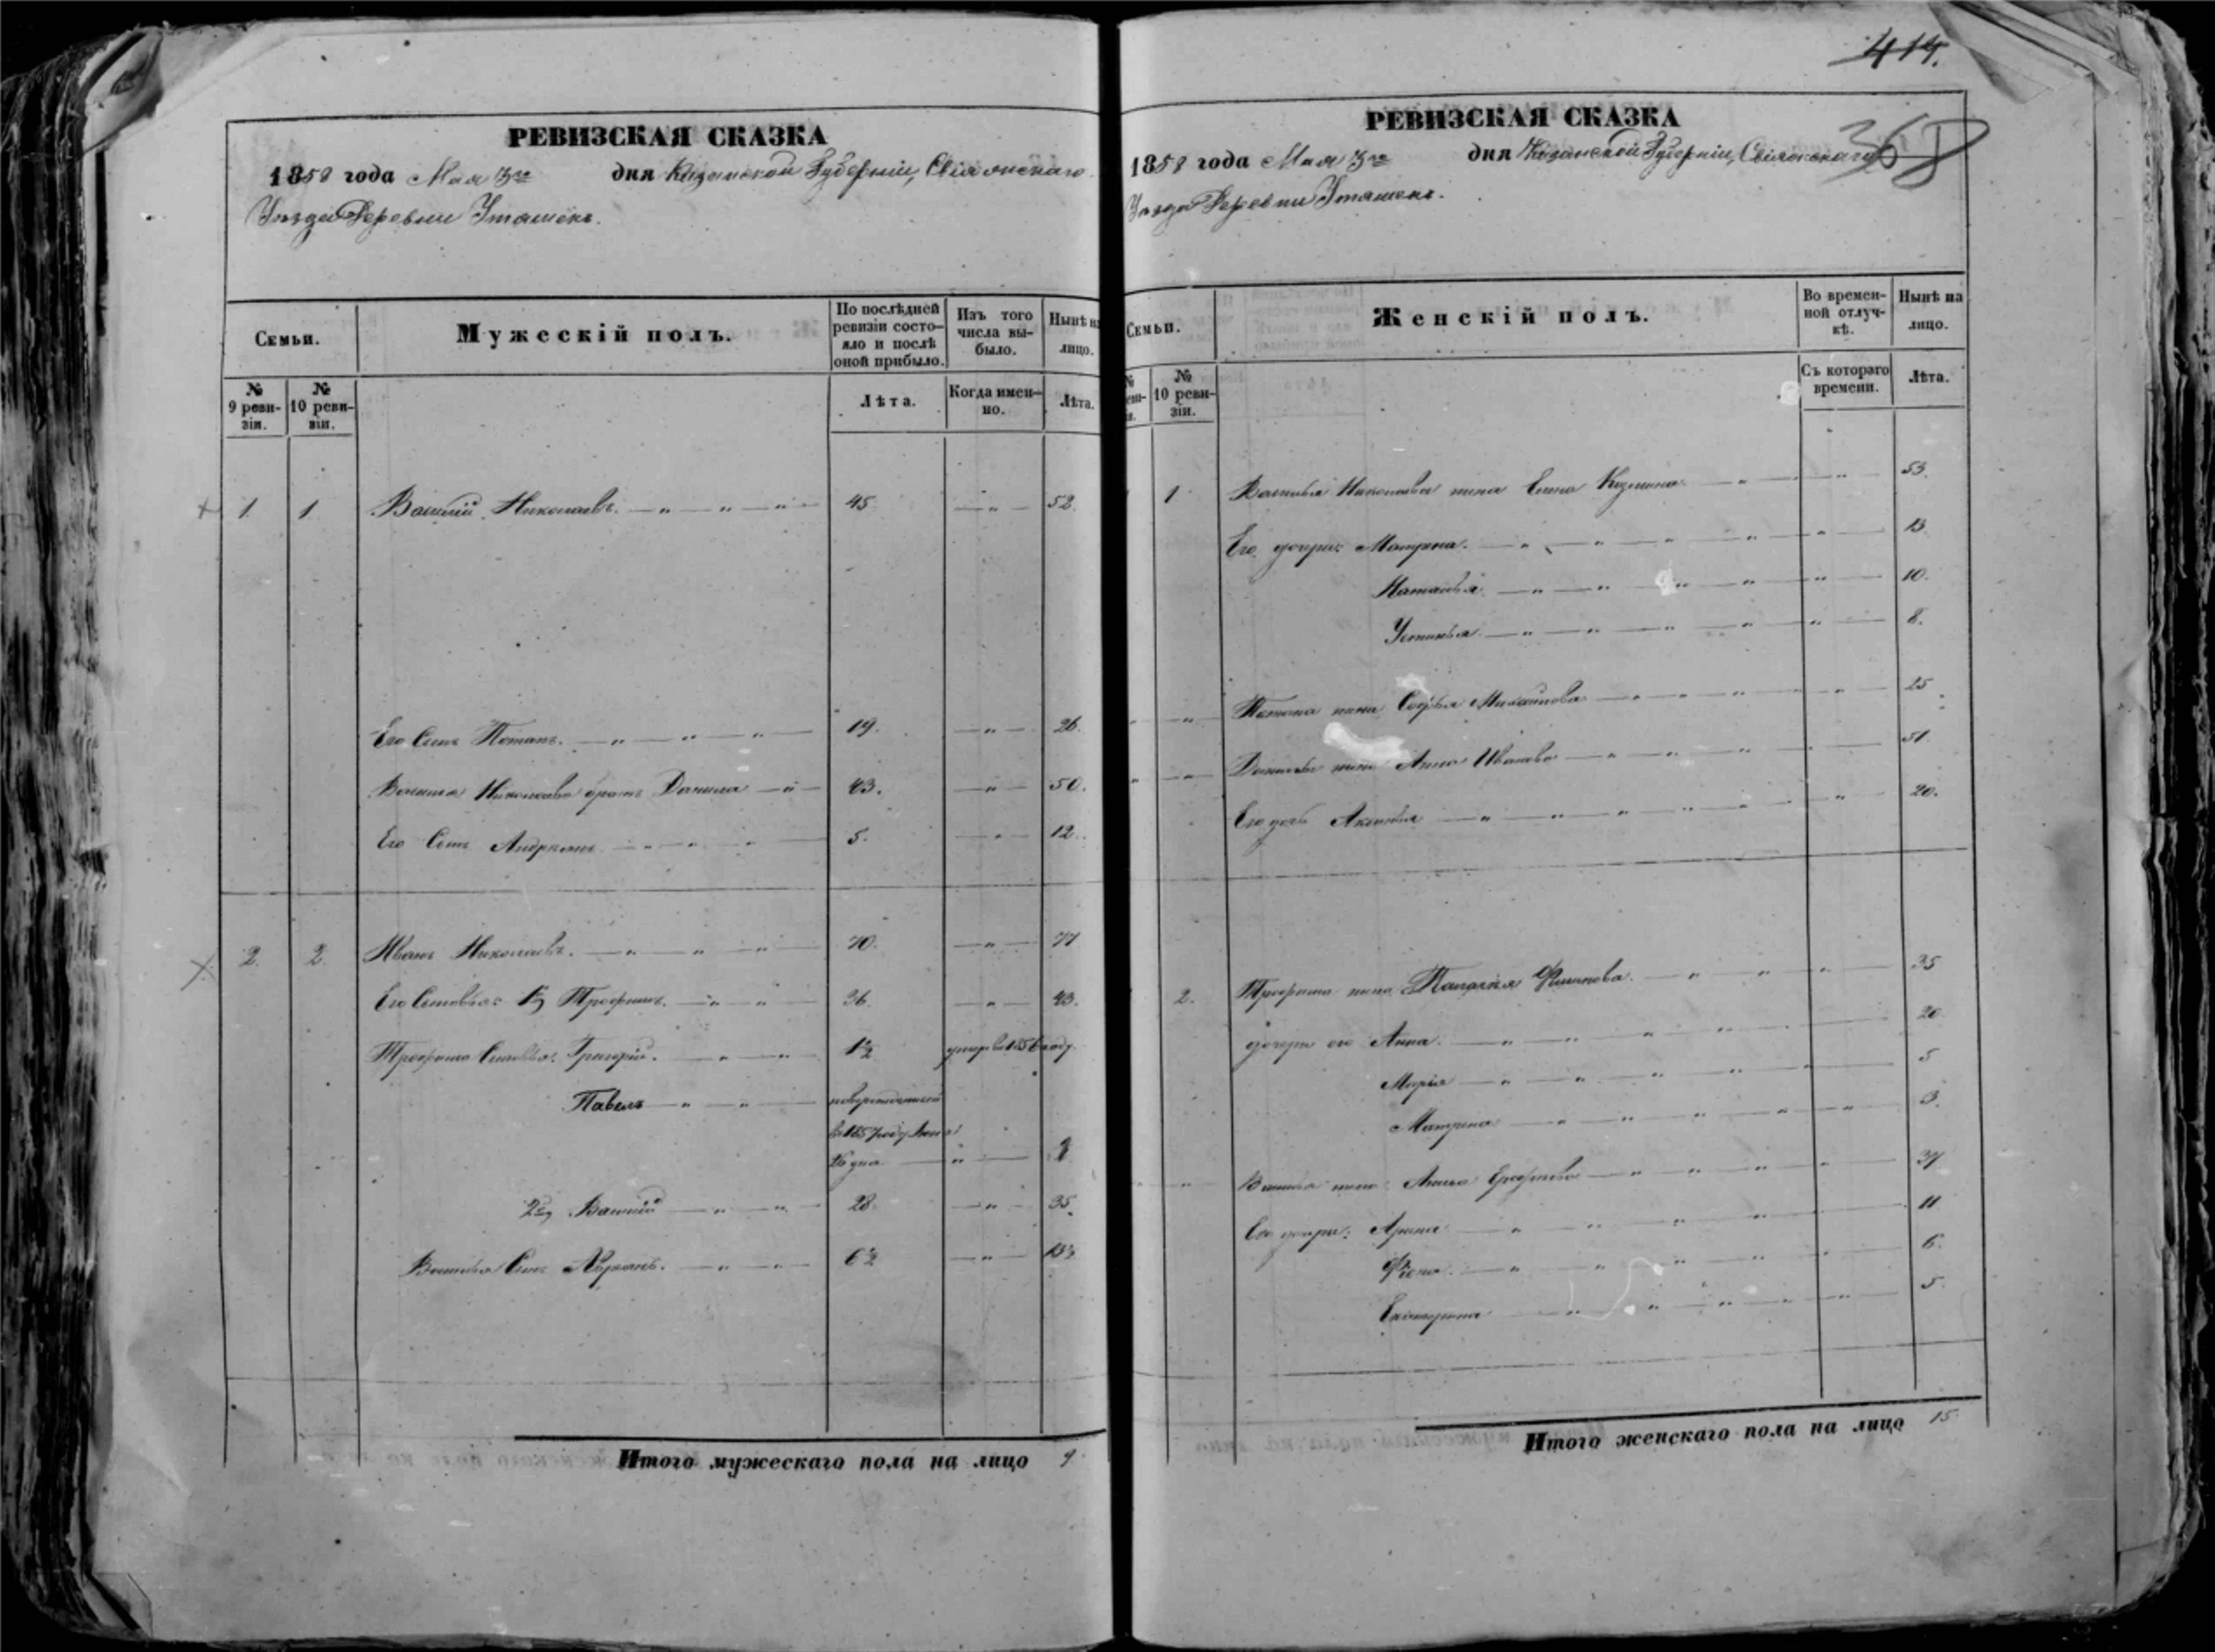 414.
РЕВИЗСКАЯ СКАЗКА
1858 года Мая 3го дня Казанской Губерніи, Свіяжскаго
Уезда Деревни Уташекъ.
Семьи.
Мужескій полъ.
По послѣдней ревизіи состояло и послѣ оной прибыло.
Изъ того числа выбыло.
Нынѣ на лицо.
№ 9 ревизіи.
№ 10 ревизіи.
Лѣта.
Когда именно.
Лѣта.
1. 1 Василій Николаевъ. 45 52.
Его Сынъ Потапъ. 19. 26.
Василья Николаева братъ Данила 43. 50.
Его Сынъ Андреянъ 5. 12.
2. 2. Иванъ Николаевъ. 70. 77
Его Сыновья: 1й Трофимъ. 36. 43.
Трофима Сыновья: Григорій. 1½ умеръ в 1856 году.
Павелъ новорожденный
в 1857 году
дня
2й Василій 28. 35.
Василья Сынъ 6½ 13½
Итого мужескаго пола на лицо 9
РЕВИЗСКАЯ СКАЗКА
368
1858 года Мая 3го дня Казанской Губерніи, Свіяжскаго
Уезда Деревни Уташекъ.
Семьи.
Женскій полъ.
Во временной отлучкѣ.
Нынѣ на лицо.
№ 10 ревизіи.
Съ котораго времени.
Лѣта.
1 Василья Николаева жена Елена Козмина 53.
Его дочери: Матрена. 13.
Наталья. 10.
Устинья. 8.
Потапа жена Софья Михайлова 25
Данилы жена Анна Иванова 51.
Его дочь Аксинья 20.
2. Трофима жена Пелагея Филипова. 35
дочери его Анна. 20
Марья 5
Матрена 3.
Василья жена Анна Ерофеева 37
Его дочери: Арина 11
Фекла. 6.
Екатерина 5.
Итого женскаго пола на лицо 15